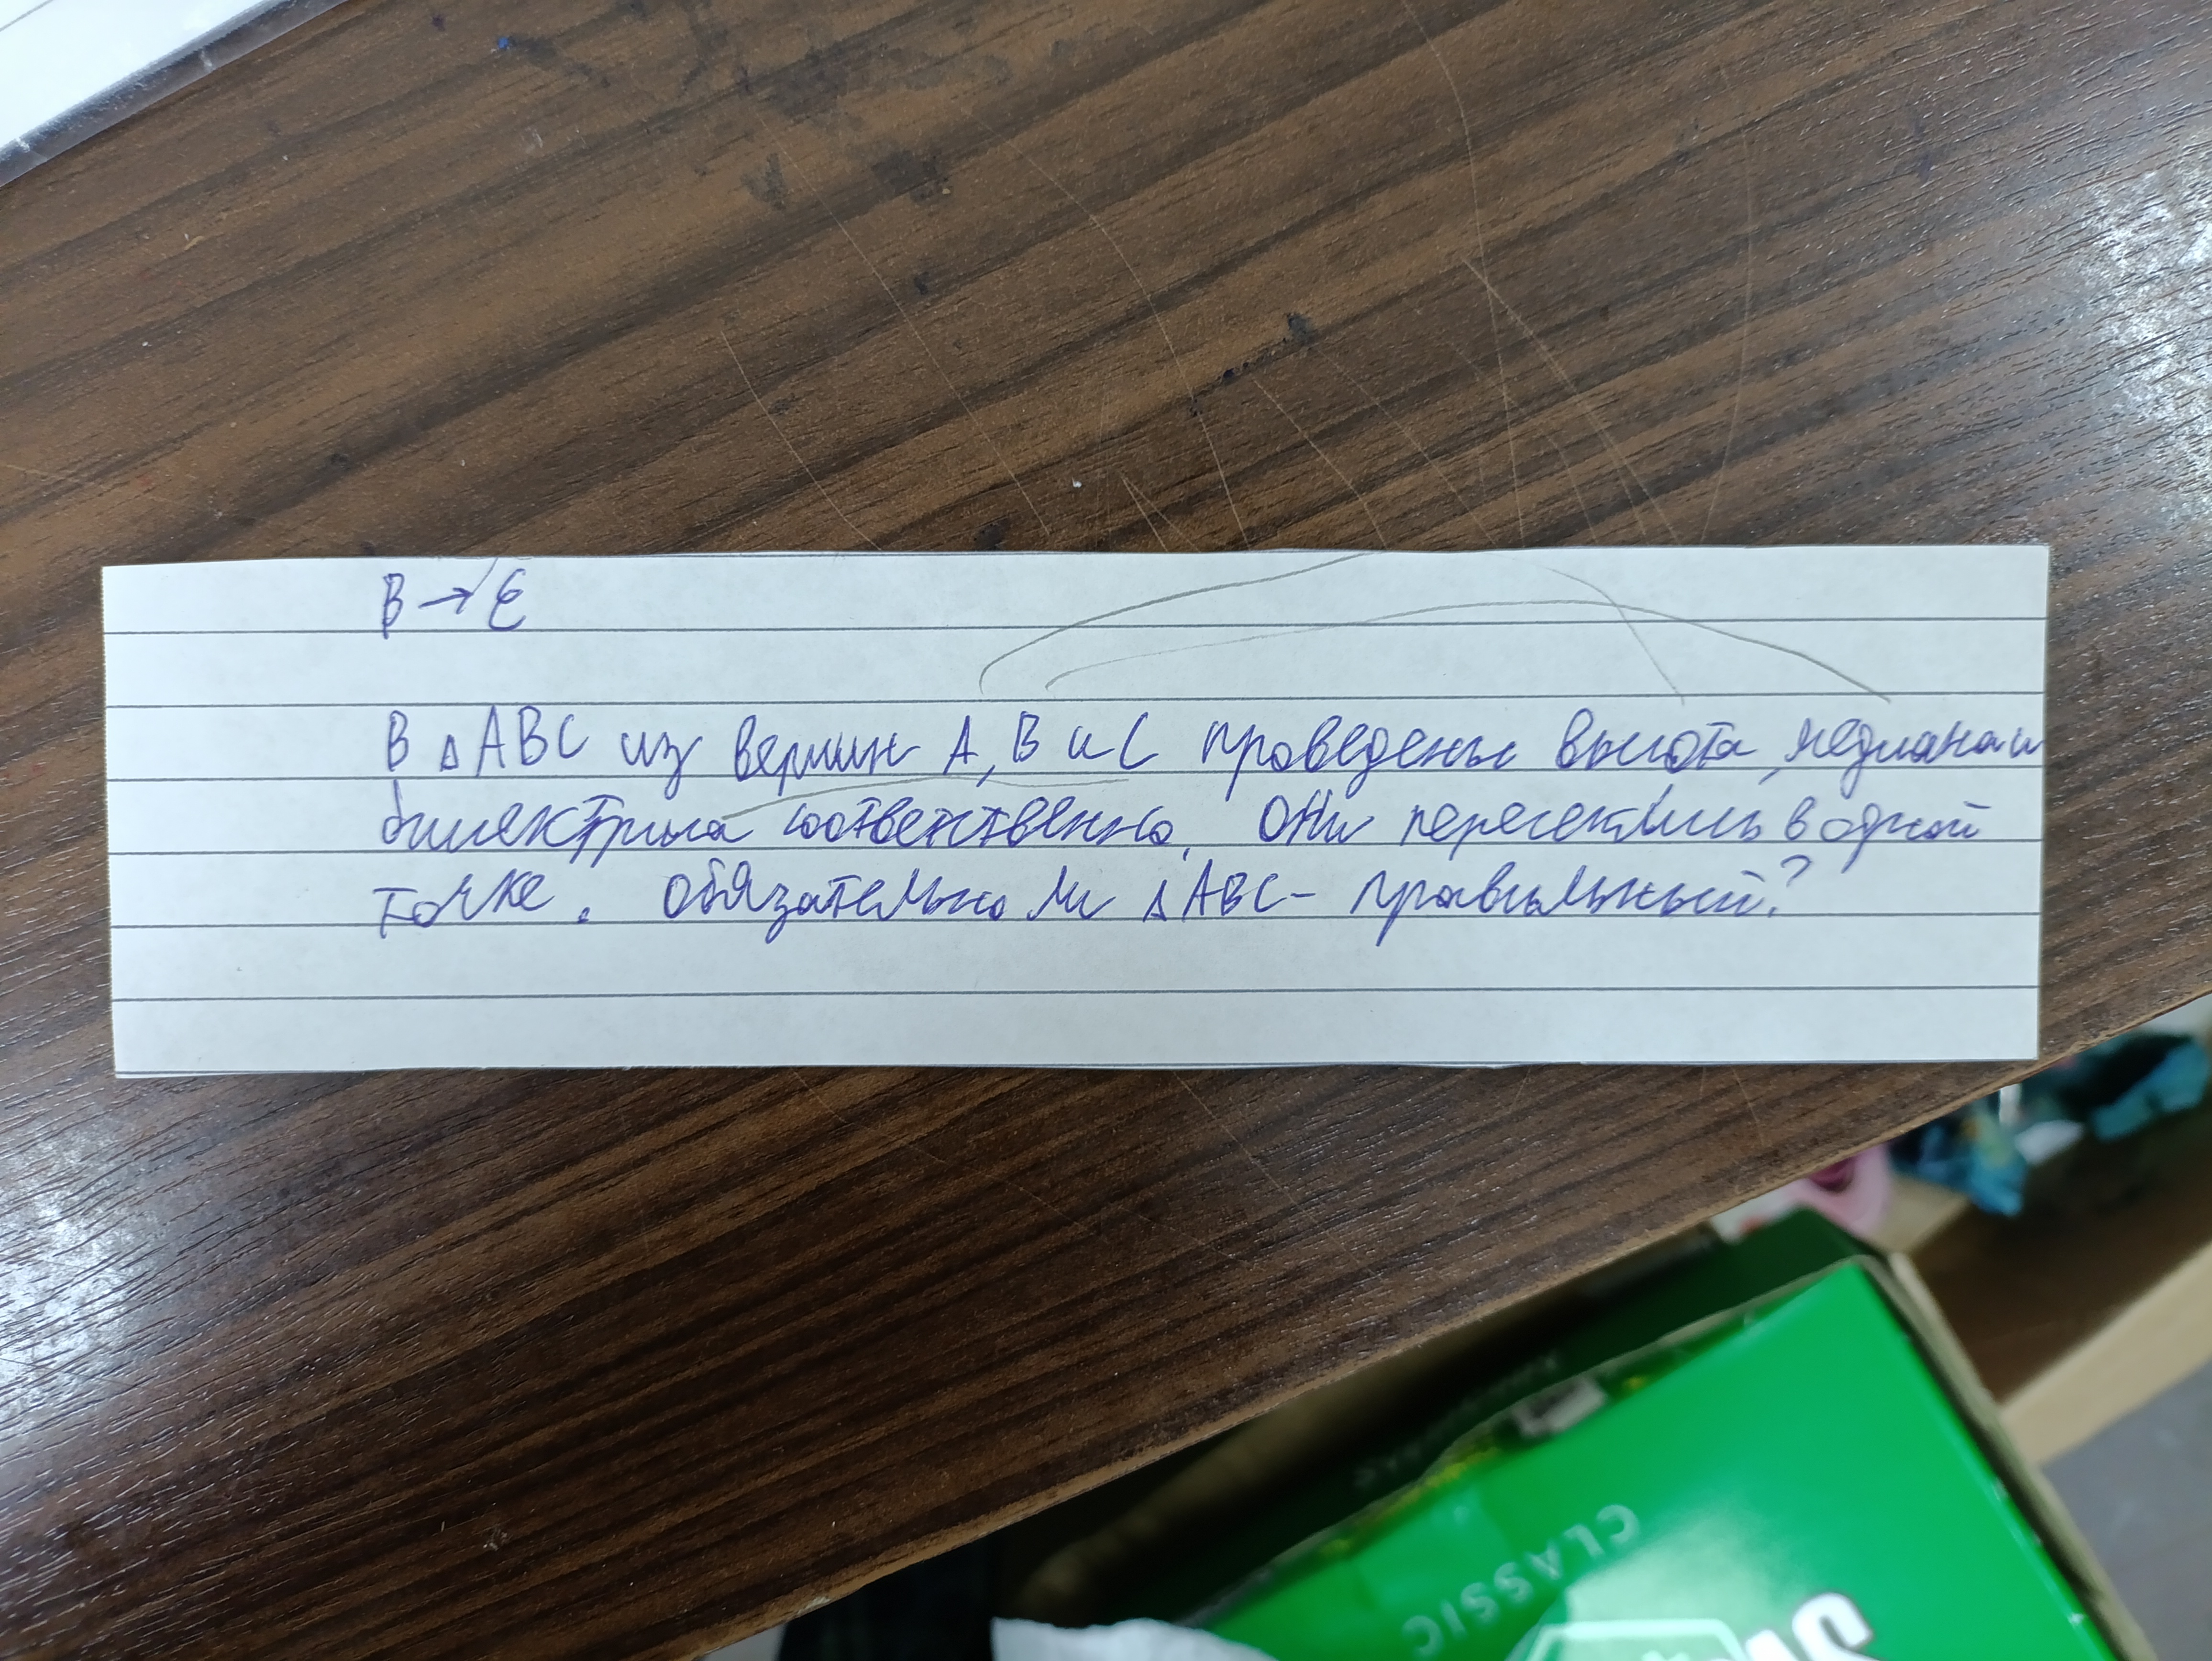 В → Е
В △ABC из вершин A, B и C проведены высота, медиана и
биссектриса соответственно. Они пересеклись в одной
точке. Обязательно ли △ABC - правильный?
CLASSIC